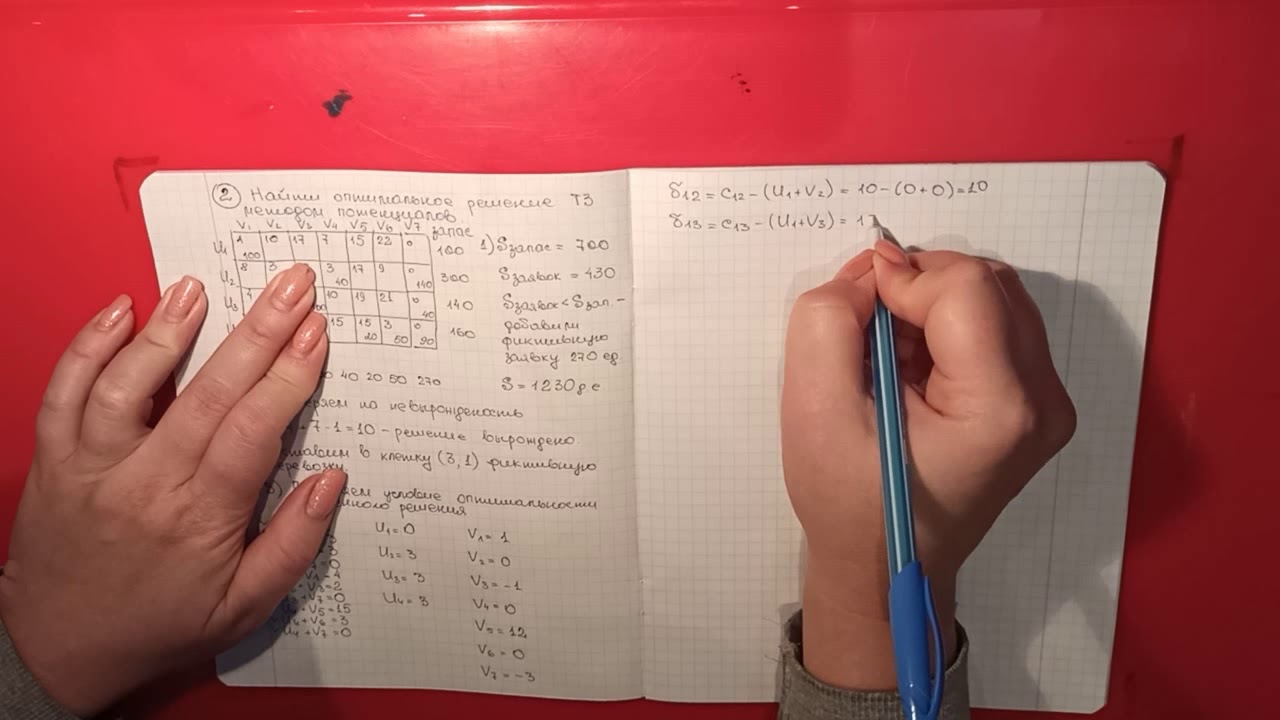 2 Найти оптимальное решение ТЗ
методом потенциалов.
V₁ V₂ V₃ V₄ V₅ V₆ V₇ запас
U₁ 1 10 17 7 15 22 0 100
100
U₂ 8 3 3 17 9 0 300
40 140
U₃ 4 10 19 21 0 140
40
15 15 3 0 160
20 50 90
40 20 50 270
1) Sзапас = 700
Sзаявок = 430
Sзаявок < Sзап. –
добавили
фиктивную
заявку 270 ед.
S = 1230 д е
на невырожденость
+ 7 - 1 = 10 – решение вырождено.
в клетку (3,1) фиктивную
перевозку.
3) условие оптимальности
решения
U₁ = 0
U₂ = 3
U₃ = 3
U₄ = 3
V₁ = 1
V₂ = 0
V₃ = -1
V₄ = 0
V₅ = 12
V₆ = 0
V₇ = -3
V₃ = 2
+ V₇ = 0
+ V₅ = 15
+ V₆ = 3
U₄ + V₇ = 0
δ₁₂ = C₁₂ - (U₁ + V₂) = 10 - (0 + 0) = 10
δ₁₃ = C₁₃ - (U₁ + V₃) = 17